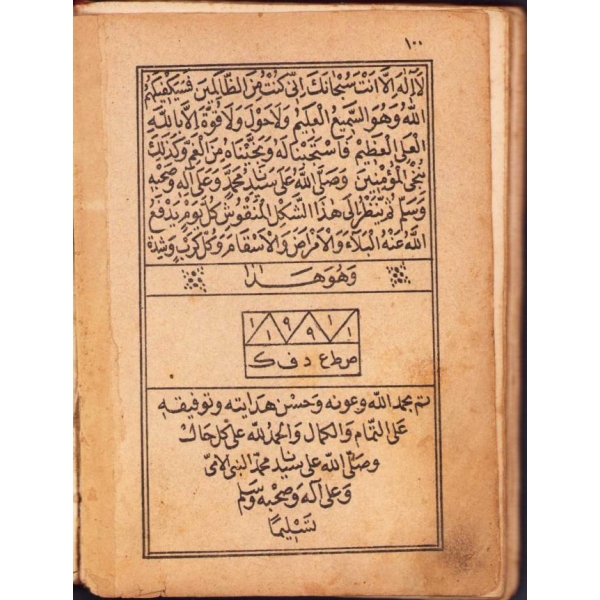 ١٠٠
لَا اِلٰهَ اِلَّا اَنْتَ سُبْحَانَكَ اِنِّى كُنْتُ مِنَ الظَّالِمِينَ فَسَيَكْفِيكَهُمُ
اللّٰهُ وَهُوَ السَّمِيعُ الْعَلِيمُ وَلَا حَوْلَ وَلَا قُوَّةَ اِلَّا بِاللّٰهِ
الْعَلِىِّ الْعَظِيْمِ فَاسْتَجَبْنَا لَهُ وَنَجَّيْنَاهُ مِنَ الْغَمِّ وَكَذٰلِكَ
نُنْجِى الْمُؤْمِنِينَ وَصَلَّى اللّٰهُ عَلَى سَيِّدِنَا مُحَمَّدٍ وَعَلَى اٰلِهِ وَصَحْبِهِ
وَسَلَّمَ ثُمَّ يَنْظُرُ اِلَى هٰذَا الشَّكْلِ الْمَنْقُوشِ كُلَّ يَوْمٍ يَدْفَعُ
اللّٰهُ عَنْهُ الْبَلَاءَ وَالْاَمْرَاضَ وَالْاَسْقَامَ وَكُلَّ كَرْبٍ وَشِدَّةٍ
وَهُوَ هٰذَا
صطع د ف ك
تم بحمد الله وعونه وحسن هدايته وتوفيقه
على التمام والكمال والحمد لله على كل حال
وصلى الله على سيدنا محمد النبى الامى
وعلى آله وصحبه وسلم
تسليمًا